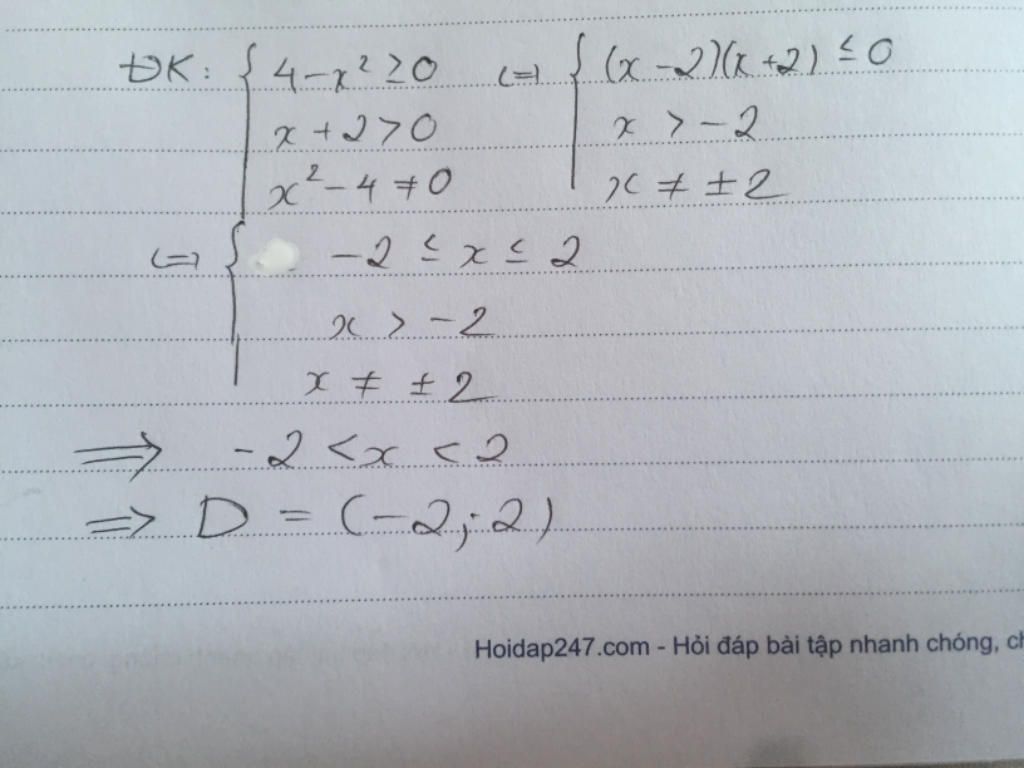 ĐK: { 4 - x² ≥ 0 <=> { (x - 2)(x + 2) ≤ 0
x + 2 > 0 x > -2
x² - 4 ≠ 0 x ≠ ±2
<=> { -2 ≤ x ≤ 2
x > -2
x ≠ ±2
=> -2 < x < 2
=> D = (-2; 2)
Hoidap247.com - Hỏi đáp bài tập nhanh chóng, ch